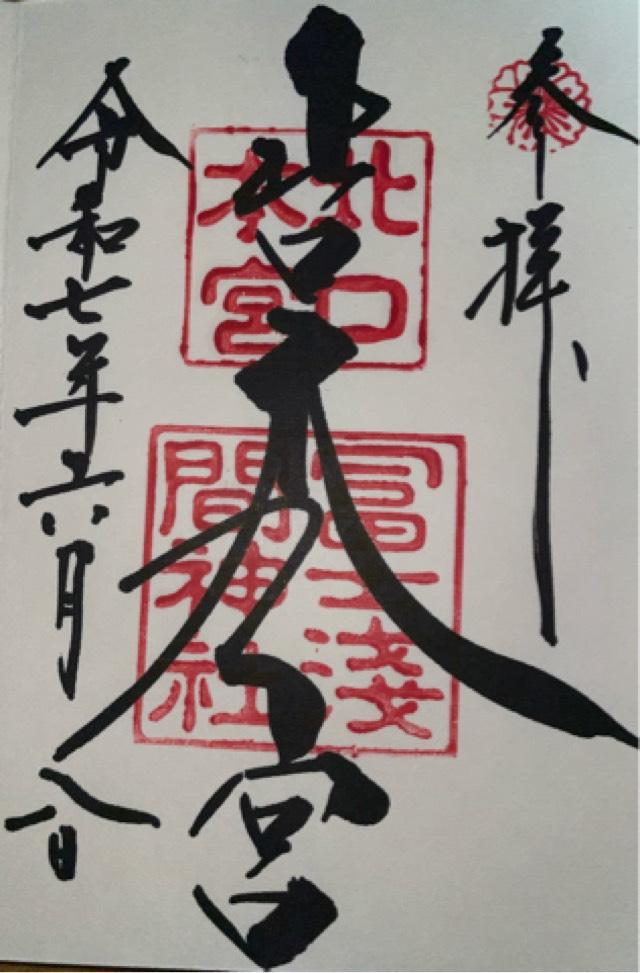 奉拝
北口本宮
北口
本宮
冨士淺
間神社
令和七年六月八日